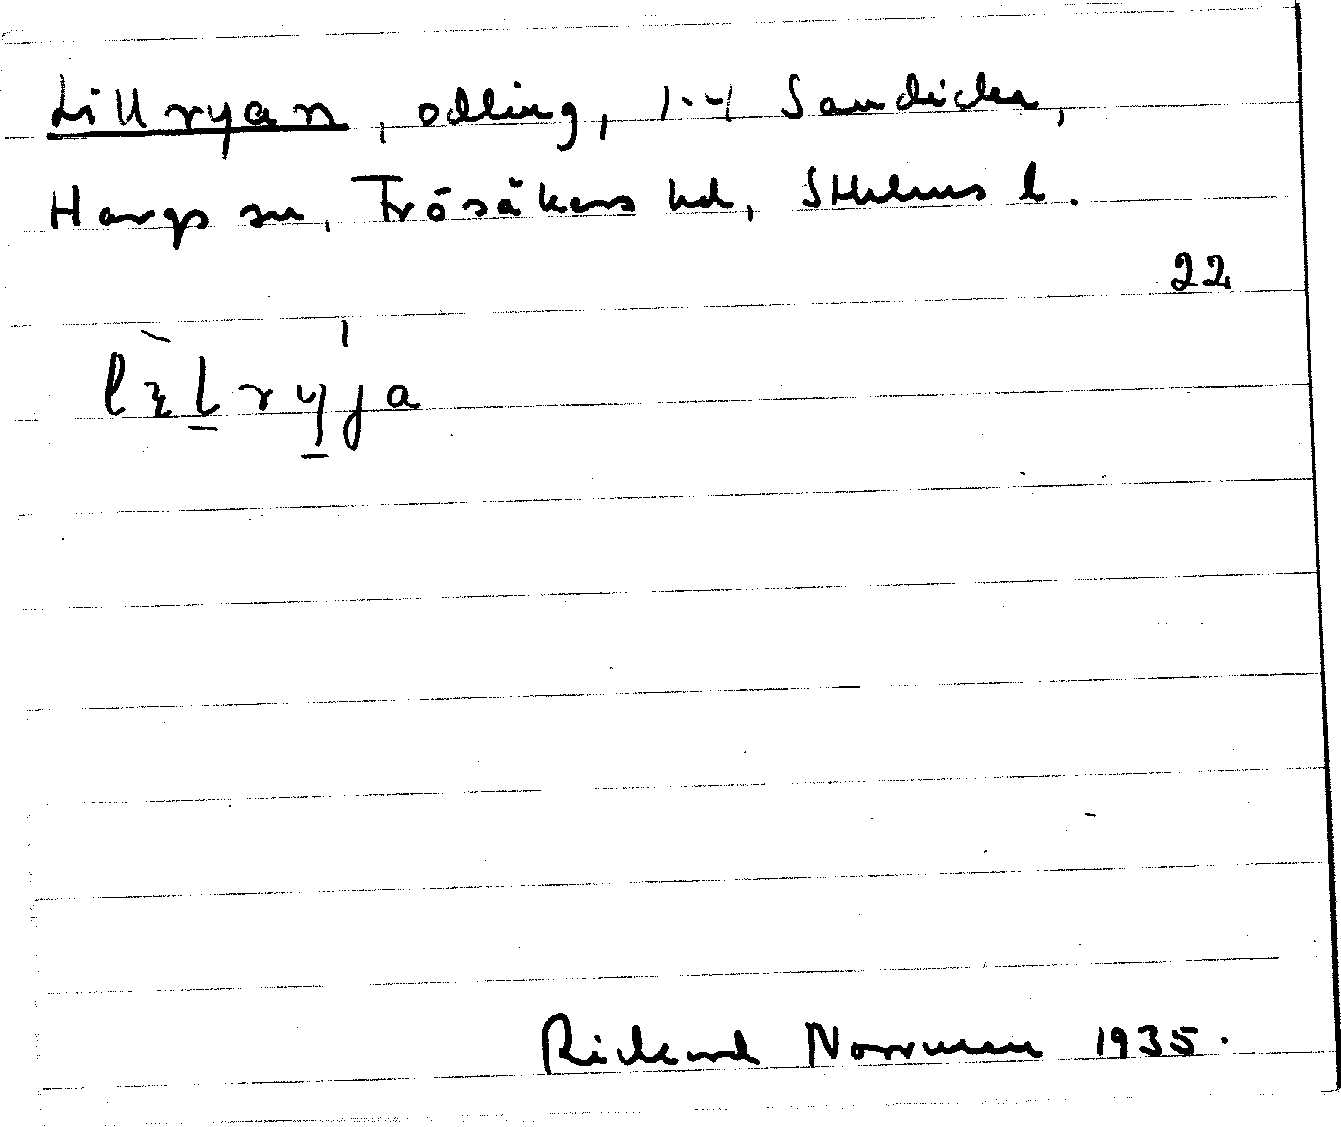 Lillryan, odling, 1-4 Sandicka,
Hargs sn, Frösåkers hd, Sthlms l.
22
lìlryja
Rickard Norrman 1935.